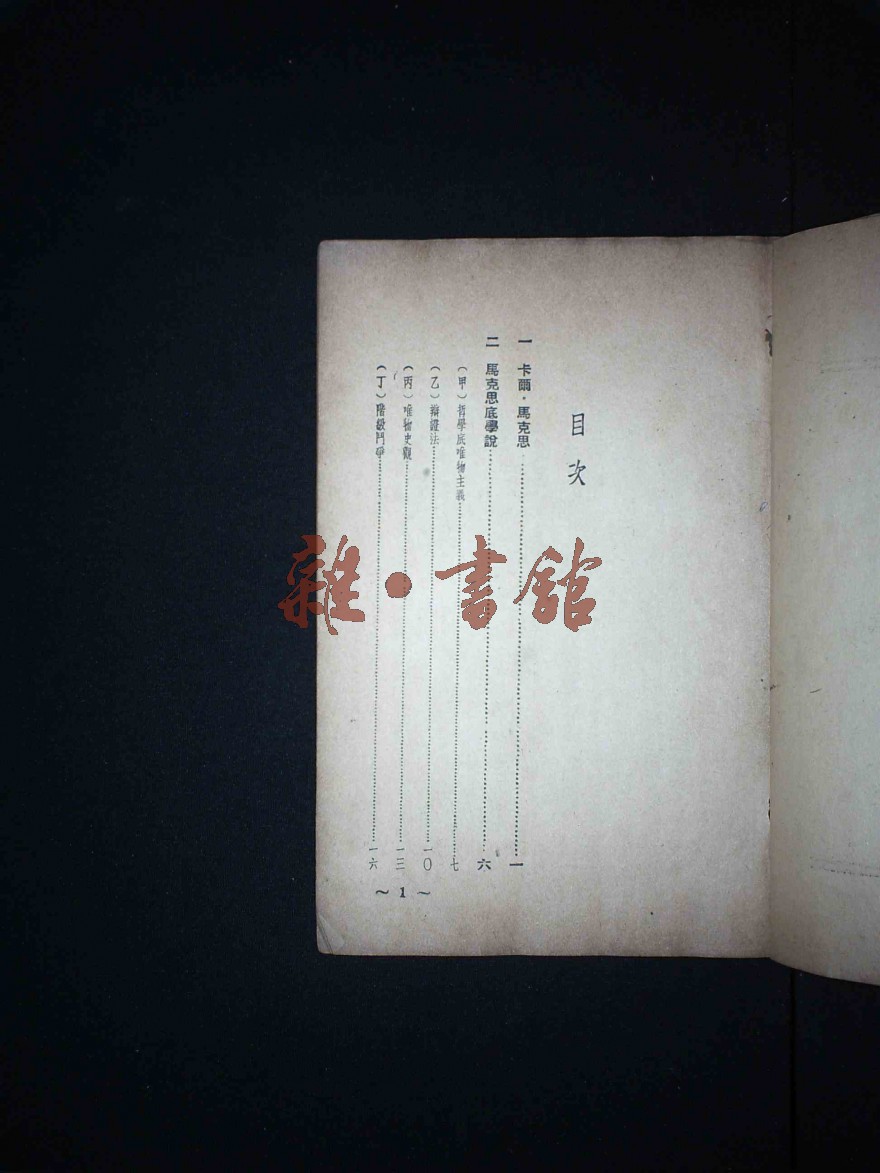 目次
一 卡爾·馬克思……一
二 馬克思底學說……六
(甲)哲學底唯物主義……七
(乙)辯證法……一〇
(丙)唯物史觀……一三
(丁)階級鬥爭……一六
~ 1 ~
雜·書館